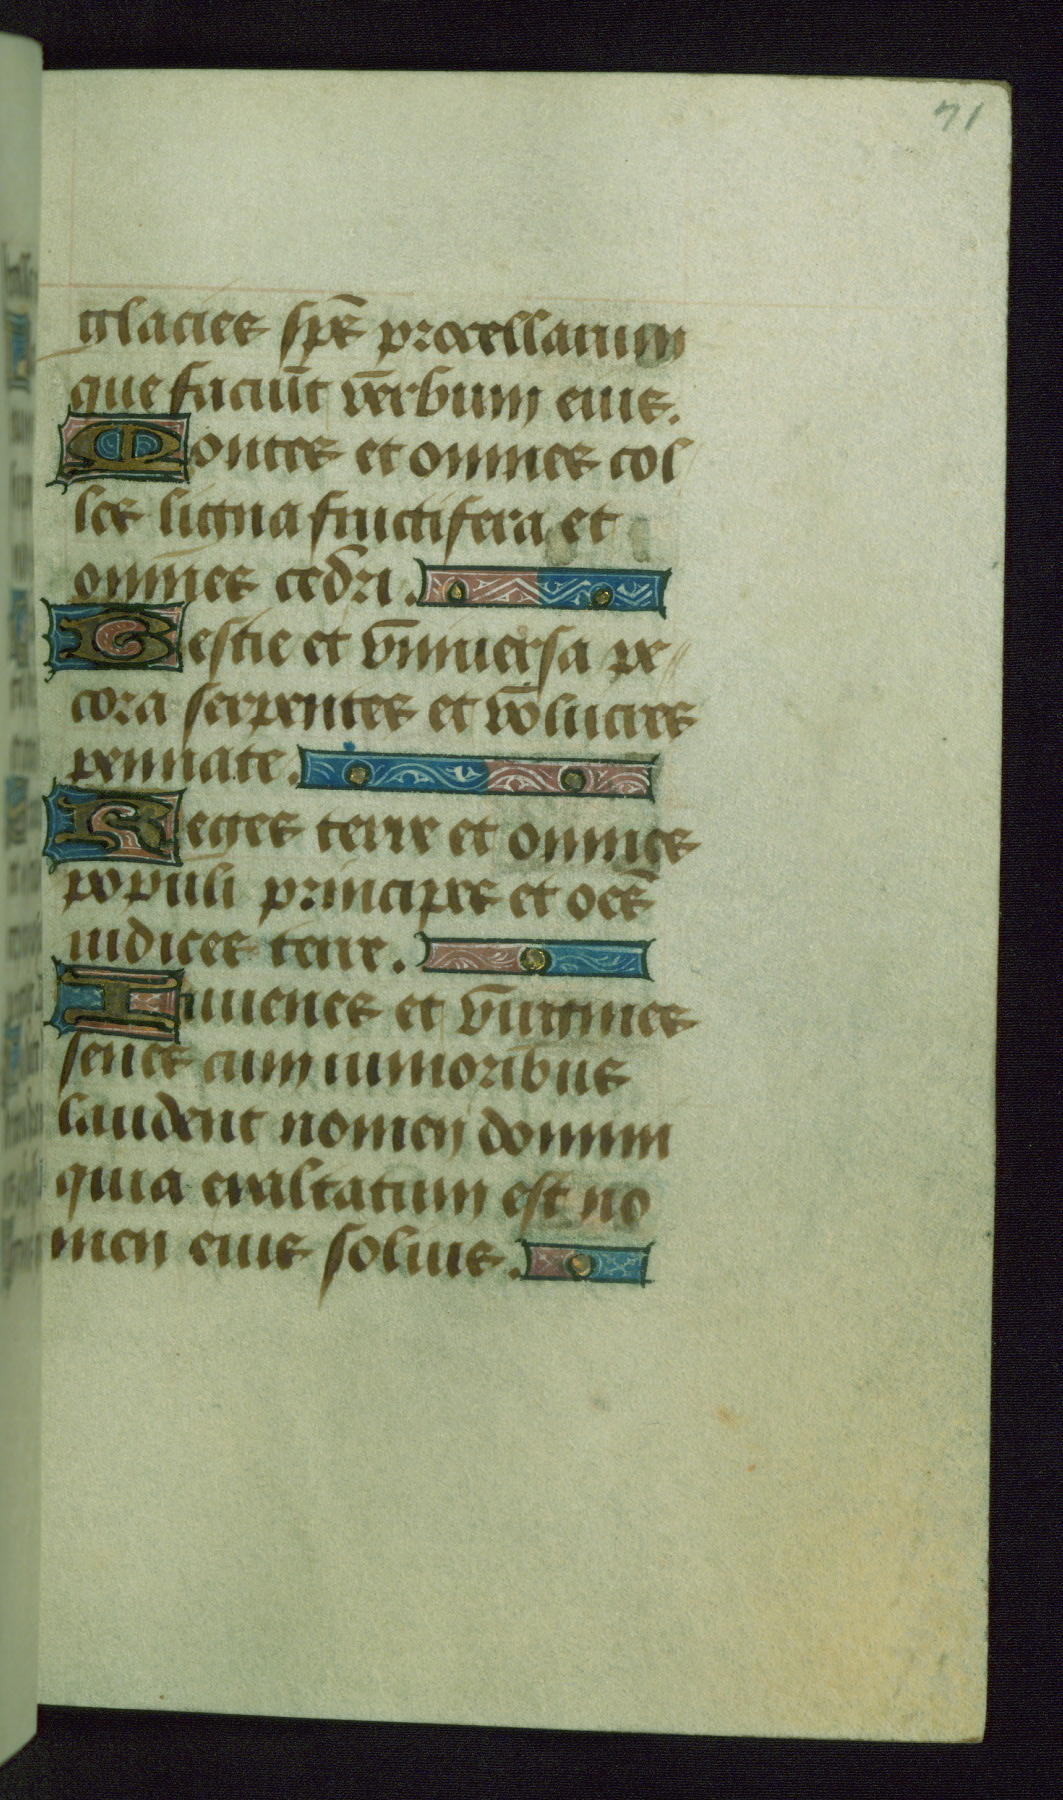 71
glacies sp̄s procellarum
que faciūt verbum eius.
Montes et omnes col
les ligna fructifera et
omnes cedri.
Bestie et vniuersa pe
cora serpentes et volucres
pennate.
Reges terre et omnes
populi principes et oēs
iudices terre.
Iuuenes et virgines
senes cum iunioribus
laudent nomen domini
quia exaltatum est no
men eius solius.